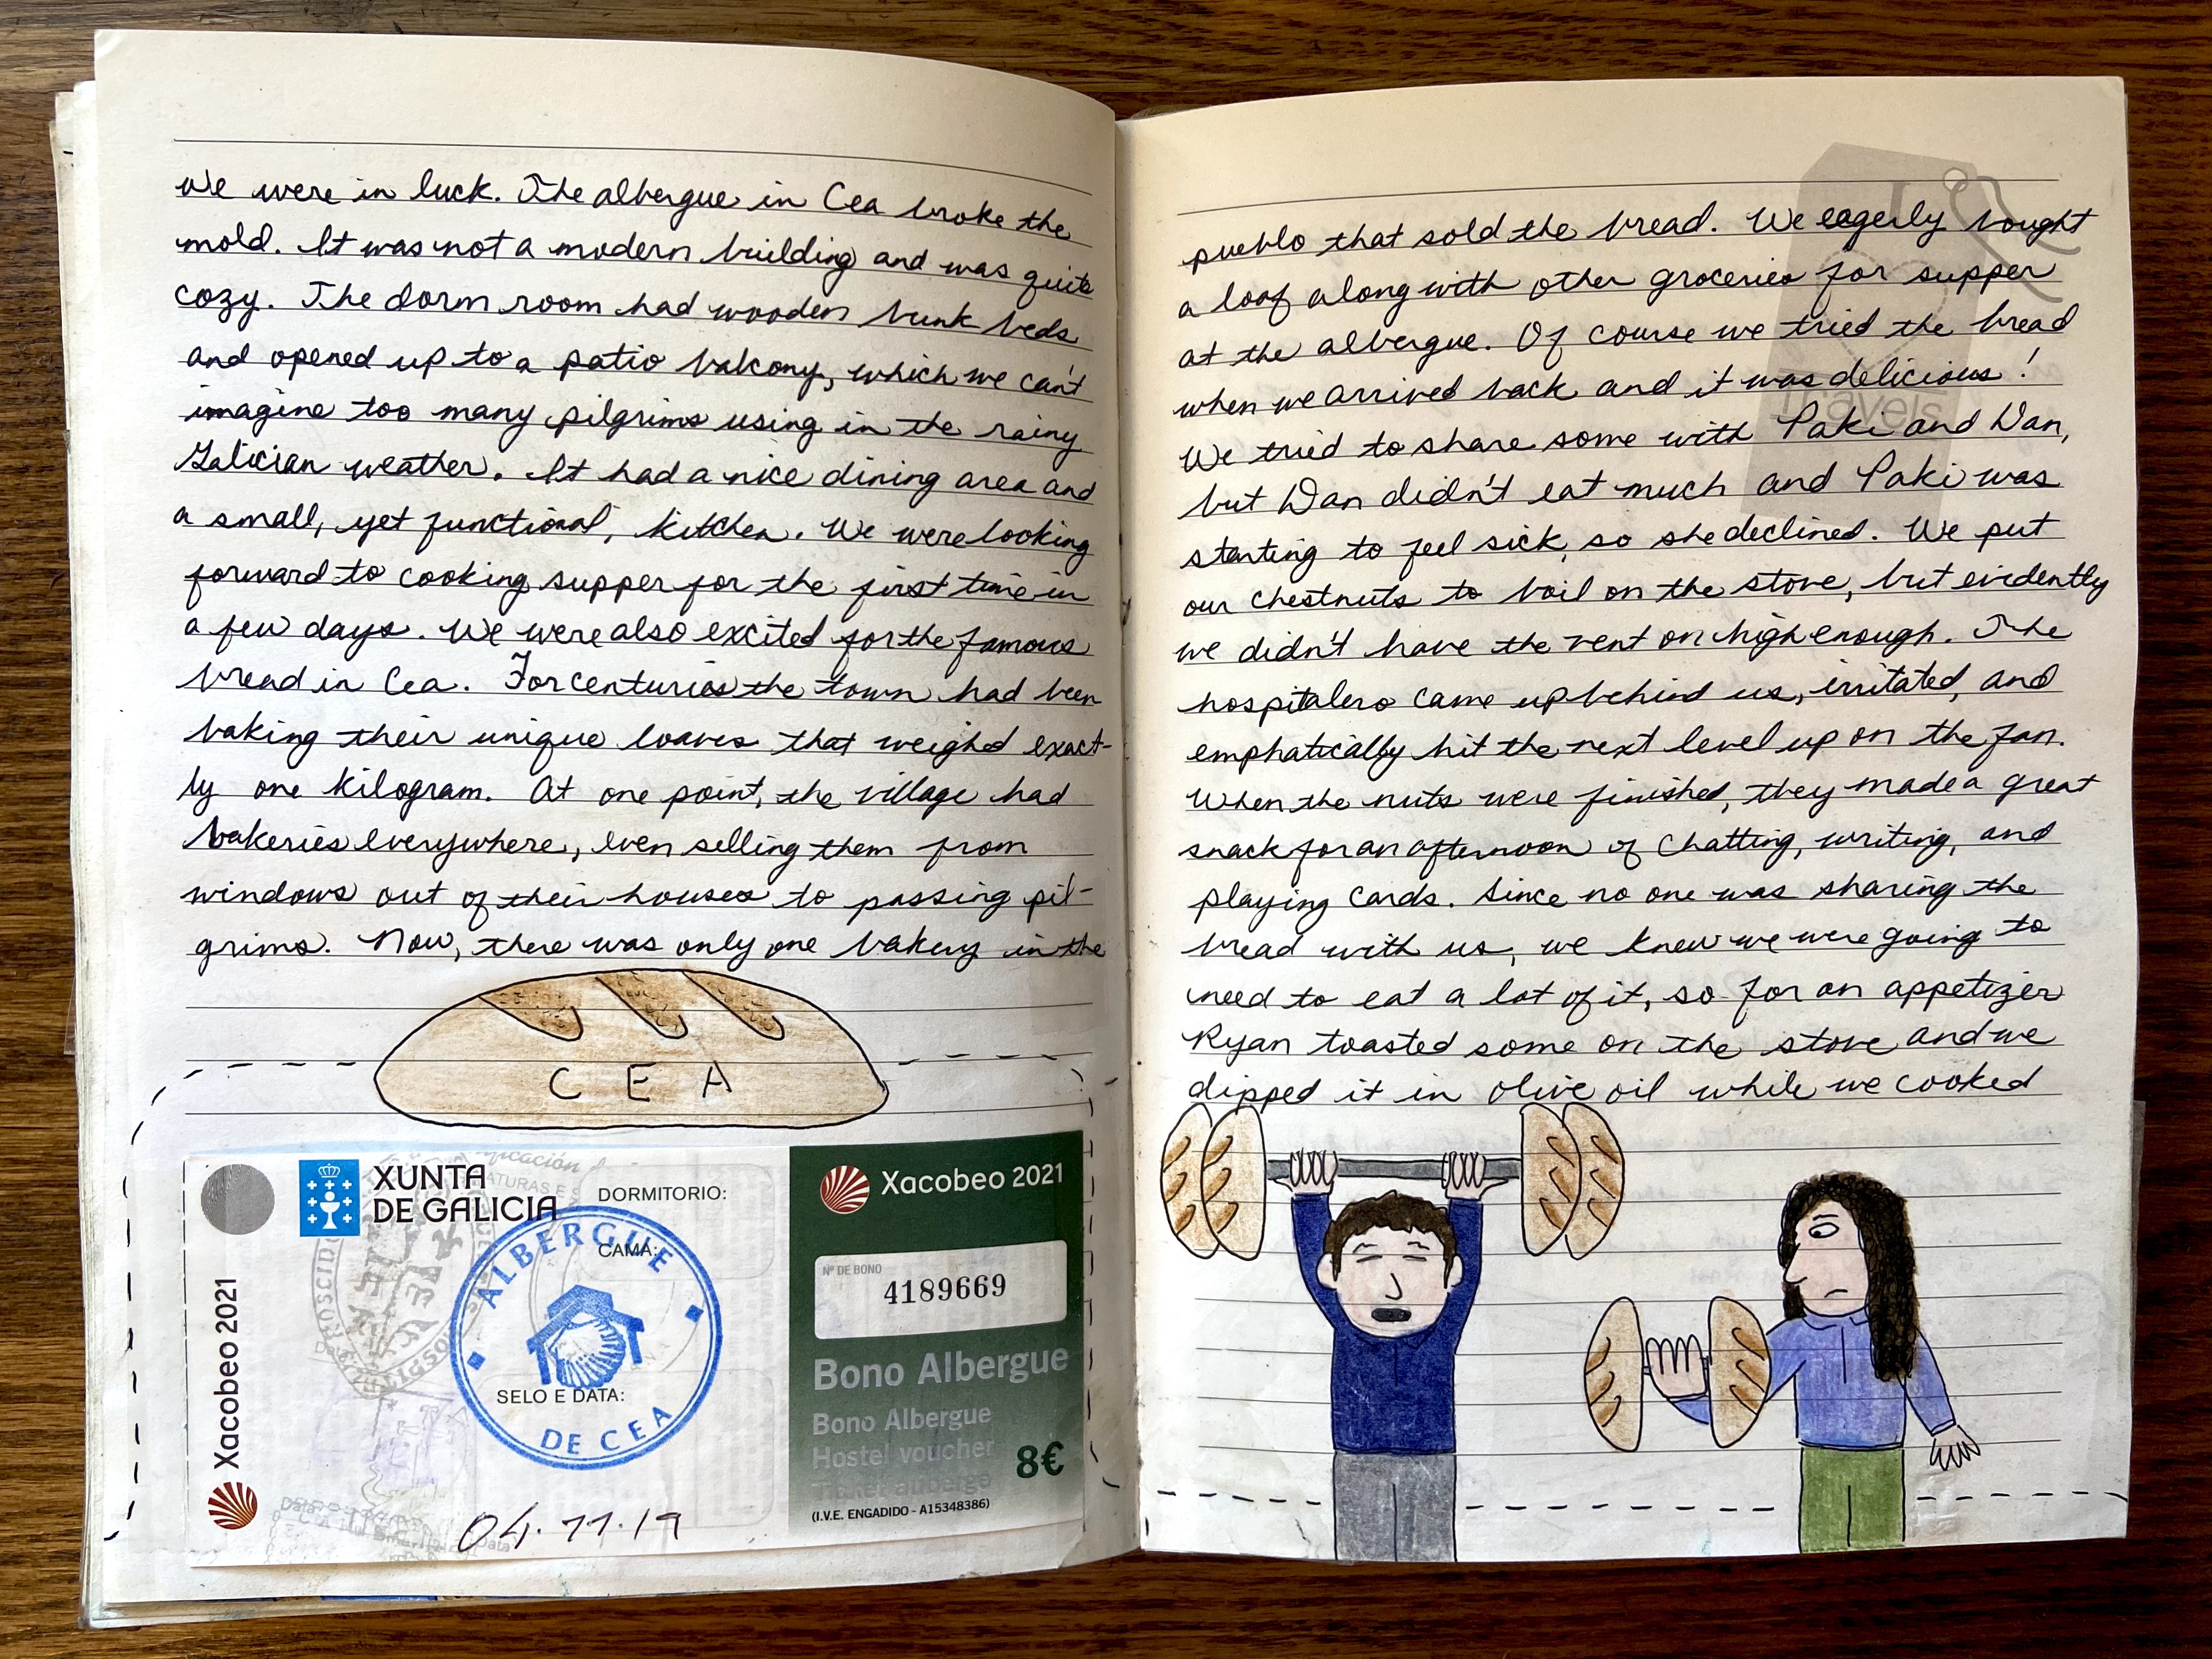 We were in luck. The albergue in Cea broke the
mold. It was not a modern building and was quite
cozy. The dorm room had wooden bunk beds
and opened up to a patio balcony, which we can't
imagine too many pilgrims using in the rainy
Galician weather. It had a nice dining area and
a small, yet functional, kitchen. We were looking
forward to cooking supper for the first time in
a few days. We were also excited for the famous
bread in Cea. For centuries the town had been
baking their unique loaves that weighed exact-
ly one kilogram. At one point, the village had
bakeries everywhere, even selling them from
windows out of their houses to passing pil-
grims. Now, there was only one bakery in the
C E A
XUNTA
DE GALICIA
DORMITORIO:
CAMA:
ALBERGUE
DE CEA
SELO E DATA:
Xacobeo 2021
04.11.19
Xacobeo 2021
Nº DE BONO
4189669
Bono Albergue
Bono Albergue
Hostel voucher
Ticket auberge
8€
(I.V.E. ENGADIDO - A15348386)
pueblo that sold the bread. We eagerly bought
a loaf along with other groceries for supper
at the albergue. Of course we tried the bread
when we arrived back and it was delicious!
travels
We tried to share some with Paki and Dan,
but Dan didn't eat much and Paki was
starting to feel sick, so she declined. We put
our chestnuts to boil on the stove, but evidently
we didn't have the vent on high enough. The
hospitalero came up behind us, irritated, and
emphatically hit the next level up on the fan.
When the nuts were finished, they made a great
snack for an afternoon of chatting, writing, and
playing cards. Since no one was sharing the
bread with us, we knew we were going to
need to eat a lot of it, so for an appetizer
Ryan toasted some on the stove and we
dipped it in olive oil while we cooked